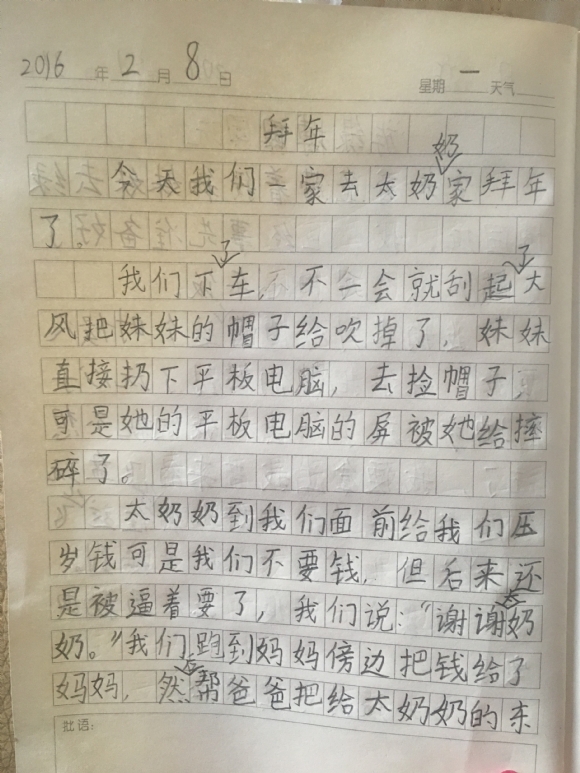 2016 年 2 月 8 日 星期 一 天气
拜年
今天我们一家去太奶奶家拜年
了。
我们下了车，不一会就刮起了大
风把妹妹的帽子给吹掉了，妹妹
直接扔下平板电脑，去捡帽子，
可是她的平板电脑的屏被她给摔
碎了。
太奶奶到我们面前给我们压
岁钱可是我们不要钱，但后来还
是被逼着要了，我们说：“谢谢太奶
奶。”我们跑到妈妈傍边把钱给了
妈妈，然后帮爸爸把给太奶奶的东
批语：